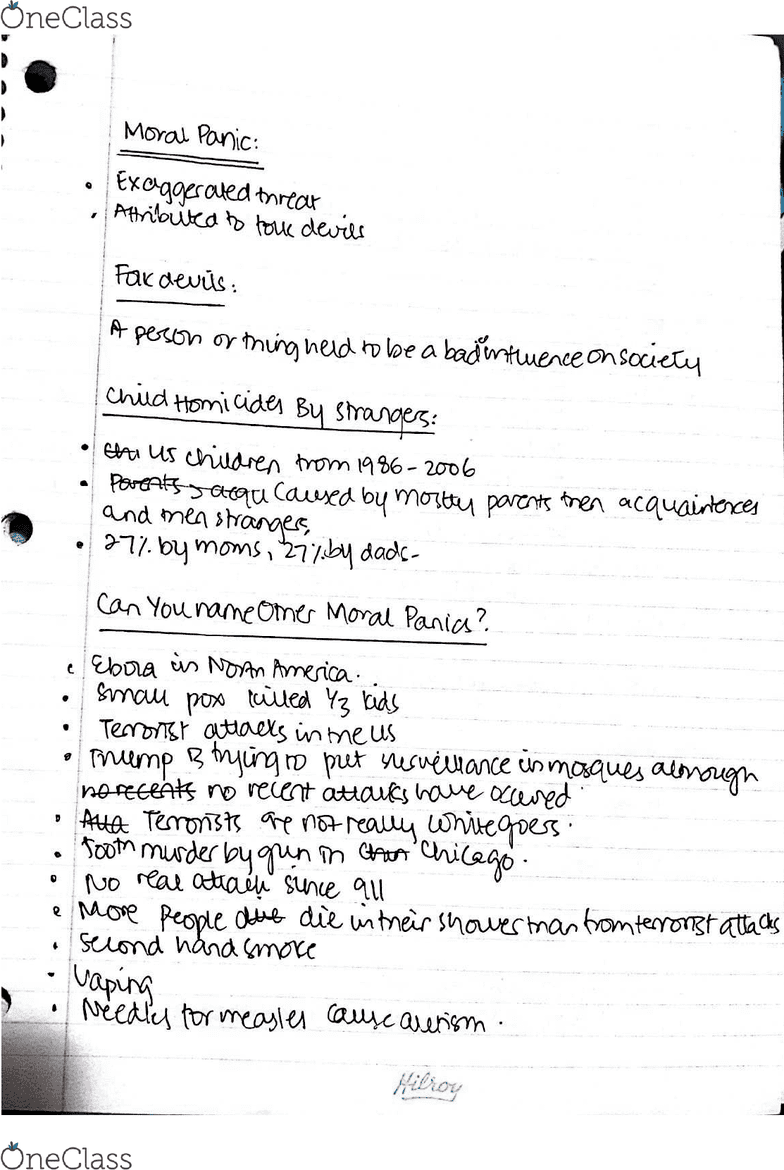 OneClass
Moral Panic:
• Exaggerated threat
• Attributed to folk devils
Folk devils:
A person or thing held to be a bad influence on society
Child Homicides By Strangers:
• US children from 1986-2006
• Parents > acqu Caused by mostly parents then acquaintences
and then strangers,
• 27% by moms, 27% by dads-
Can You name Other Moral Panics?
• Ebola in North America.
• Small pox killed 1/3 kids
• Terrorist attacks in the US
• Trump is trying to put surveillance in mosques although
no recents no recent attacks have occured
• Terrorists are not really white goers.
• 500th murder by gun in Chicago.
• No real attack since 911
• More People die in their shower than from terrorist attacks
• Second hand smoke
- Vaping
• Needles for measles cause autism.
Hilroy
OneClass